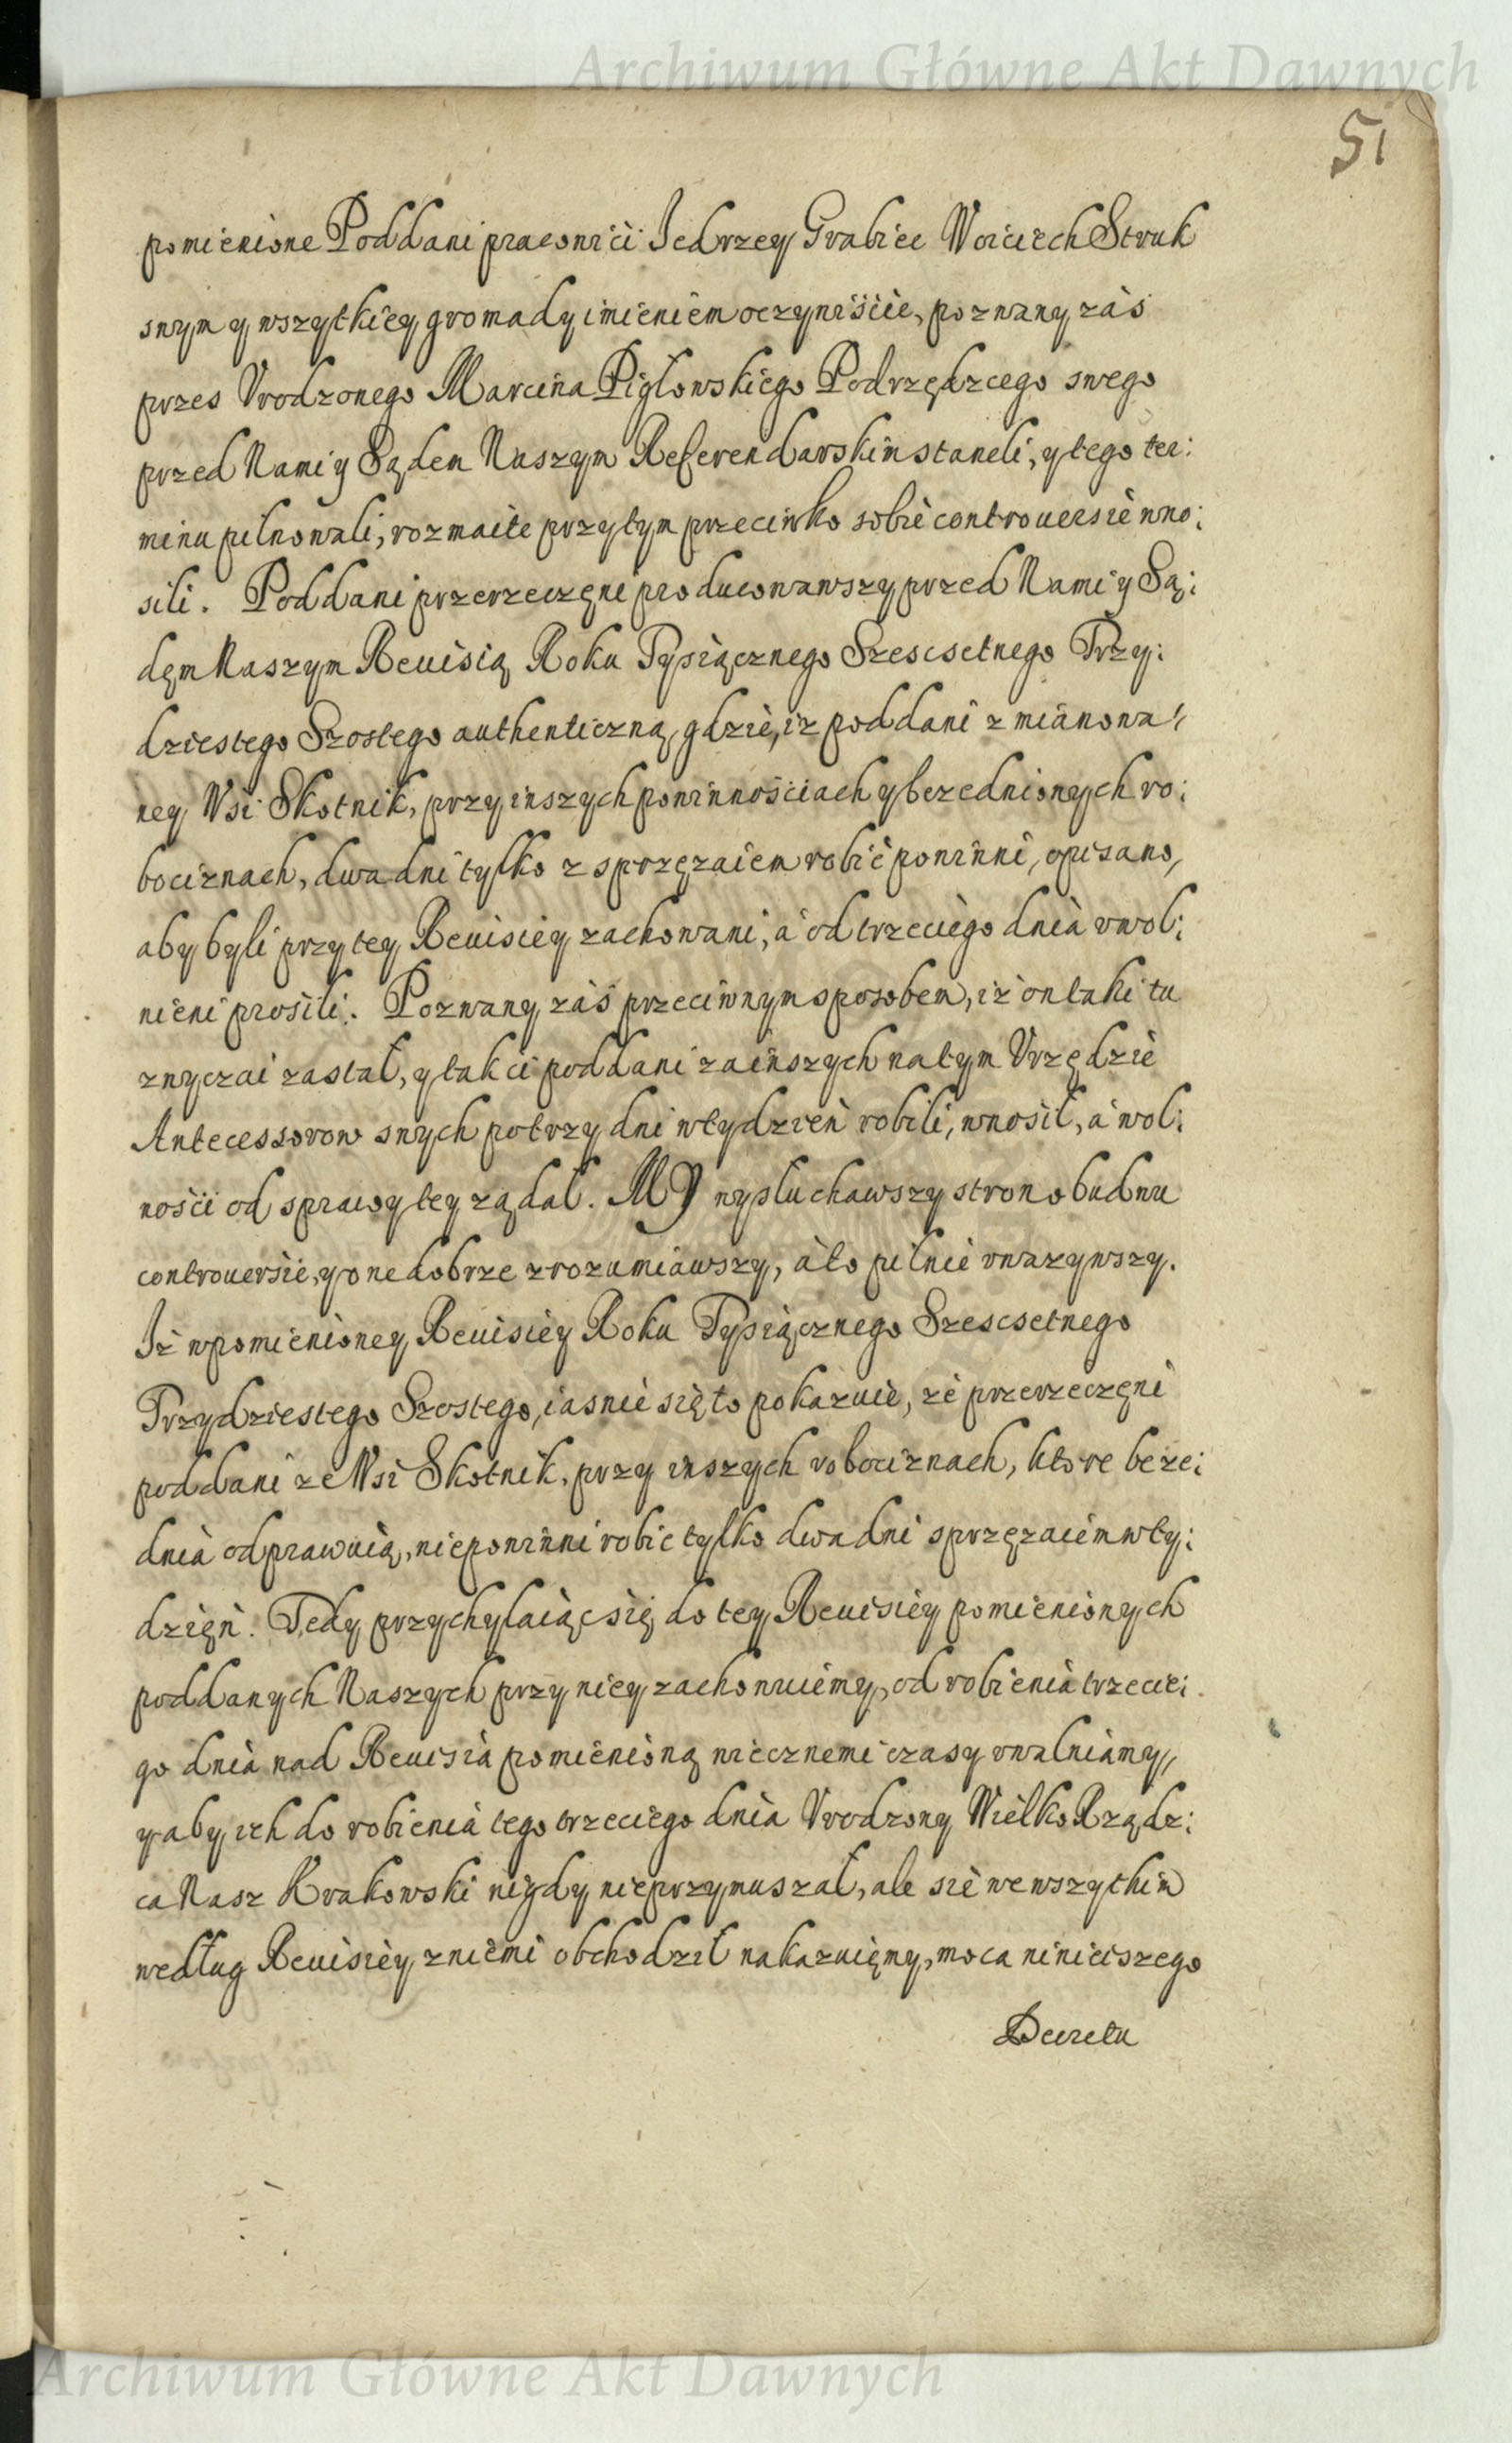 Archiwum Główne Akt Dawnych
51
pomienione Poddani pracowici Jedrzey Grabiec Woiciech Struk
swym y wszytkiey gromady imieniem oczywiście, pozwany zaś
przes Vrodzonego Marcina Pigłowskiego Podrzędzcego swego
przed Nami y Sądem Naszym Referendarskim staneli, y tego ter:
minu pilnowali, rozmaite przytym przeciwko sobie controuersie wno:
sili. Poddani przerzeczęni producowawszy przed Nami y Są:
dęm Naszym Reuisią Roku Tysiącznego Szescsetnego Trzy:
dziestego Szostego authenticzną, gdzie, iz poddani z mianowa:
ney Wsi Skotnik, przy inszych powinnościach y bezednionych ro:
bociznach, dwa dni tylko z sprzęzaiem robić powinni, opisano,
aby byli przy tey Reuisiey zachowani, a od trzeciego dnia vwol:
nieni prosili. Pozwany zaś przeciwnym sposobem, iż on taki tu
zwyczai zastał, y tak ci poddani za inszych na tym Vrzędzie
Antecessorow swych po trzy dni w tydzień robili, wnosił, a wol:
ności od sprawy tey ządał. MY wysłuchawszy stron obudwu
controuersie, y one dobrze zrozumiawszy, a to pilnie vwazywszy.
Iż w pomienioney Reuisiey Roku Tysiącznego Szescsetnego
Trzydziestego Szostego, iasnie się to pokazuie, ze przerzeczęni
poddani ze Wsi Skotnik, przy inszych robociznach, ktore beze:
dnia odprawuią, niepowinni robic tylko dwa dni sprzęzaiem w ty:
dzięń. Tedy przychylaiąc się do tey Reuisiey pomienionych
poddanych Naszych przy niey zachowuiemy, od robienia trzecie:
go dnia nad Reuisia pomienioną wiecznemi czasy vwalniamy,
y aby ich do robienia tego trzeciego dnia Vrodzony WielkoRządz:
ca Nasz Krakowski nigdy nieprzymuszał, ale sie we wszytkim
według Reuisiey z niemi obchodził nakazuięmy, moca ninieiszego
Decretu
Archiwum Główne Akt Dawnych